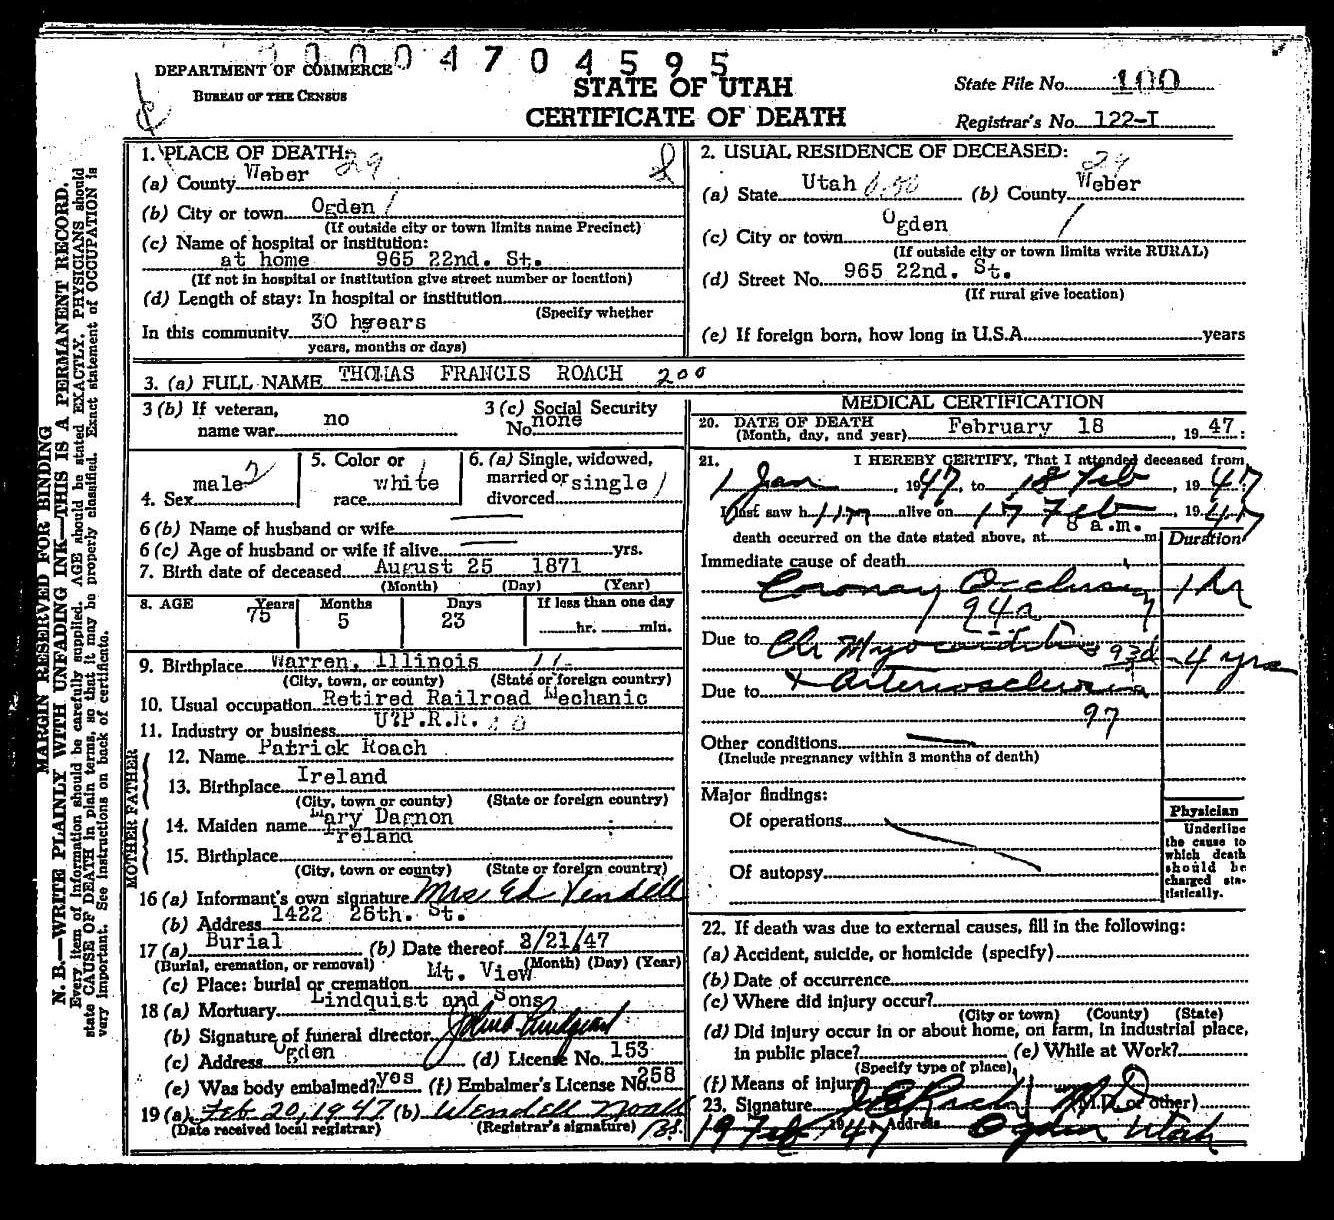 00004704595
DEPARTMENT OF COMMERCE
BUREAU OF THE CENSUS
STATE OF UTAH
CERTIFICATE OF DEATH
State File No. 100
Registrar's No. 122-I
MARGIN RESERVED FOR BINDING
N. B.—WRITE PLAINLY WITH UNFADING INK—THIS IS A PERMANENT RECORD.
Every item of information should be carefully supplied. AGE should be stated EXACTLY. PHYSICIANS should
state CAUSE OF DEATH in plain terms, so that it may be properly classified. Exact statement of OCCUPATION is
very important. See instructions on back of certificate.
1. PLACE OF DEATH: 29
(a) County Weber
(b) City or town Ogden
(If outside city or town limits name Precinct)
(c) Name of hospital or institution:
at home 965 22nd. St.
(If not in hospital or institution give street number or location)
(d) Length of stay: In hospital or institution
(Specify whether
In this community 30 years
years, months or days)
2. USUAL RESIDENCE OF DECEASED: 29
(a) State Utah (b) County Weber
(c) City or town Ogden
(If outside city or town limits write RURAL)
(d) Street No. 965 22nd. St.
(If rural give location)
(e) If foreign born, how long in U.S.A. years
3. (a) FULL NAME THOMAS FRANCIS ROACH 200
3 (b) If veteran,
name war no
3 (c) Social Security
No. none
4. Sex male
5. Color or
race white
6. (a) Single, widowed,
married or
divorced single
6 (b) Name of husband or wife
6 (c) Age of husband or wife if alive yrs.
7. Birth date of deceased August 25 1871
(Month) (Day) (Year)
8. AGE Years Months Days If less than one day
75 5 23 hr. min.
9. Birthplace Warren, Illinois
(City, town, or county) (State or foreign country)
10. Usual occupation Retired Railroad Mechanic
11. Industry or business U.P.R.R.
FATHER
12. Name Patrick Roach
13. Birthplace Ireland
(City, town or county) (State or foreign country)
MOTHER
14. Maiden name Mary Dagnon
15. Birthplace Ireland
(City, town or county) (State or foreign country)
16 (a) Informant's own signature Mrs Ed
(b) Address 1422 26th. St.
17 (a) Burial (b) Date thereof 2/21/47
(Burial, cremation, or removal) (Month) (Day) (Year)
(c) Place: burial or cremation Mt. View
18 (a) Mortuary Lindquist and Sons
(b) Signature of funeral director John Lindquist
(c) Address Ogden (d) License No. 153
(e) Was body embalmed? yes (f) Embalmer's License No. 258
19 (a) Feb 20, 1947 (b) Wendell Noall
(Date received local registrar) (Registrar's signature)
MEDICAL CERTIFICATION
20. DATE OF DEATH
(Month, day, and year) February 18, 1947:
21. I HEREBY CERTIFY, That I attended deceased from
1 Jan, 1947, to 18 Feb, 1947
I last saw him alive on 17 Feb, 1947
death occurred on the date stated above, at 8 a.m. m.
Duration
Immediate cause of death
Coronary Occlusion 1 hr
94a
Due to Ch Myocarditis 93d 4 yrs
Due to + Arteriosclerosis
97
Other conditions
(Include pregnancy within 3 months of death)
Major findings:
Of operations
Of autopsy
Physician
Underline
the cause to
which death
should be
charged sta-
tistically.
22. If death was due to external causes, fill in the following:
(a) Accident, suicide, or homicide (specify)
(b) Date of occurrence
(c) Where did injury occur?
(City or town) (County) (State)
(d) Did injury occur in or about home, on farm, in industrial place,
in public place? (e) While at Work?
(Specify type of place)
(f) Means of injury
23. Signature M.D. (M.D. or other)
19 Feb 1947, Address Ogden Utah